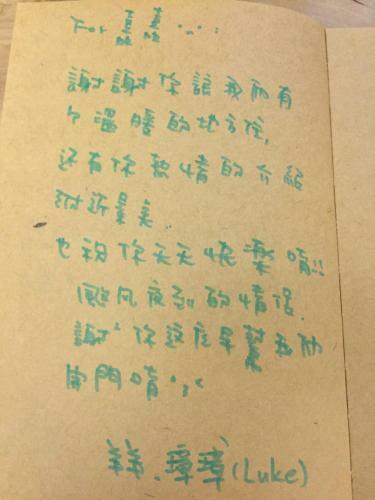 For
謝謝你讓我們有
个溫暖的地方住,
还有你熱情的介紹
附近景美..
也祝你天天快樂唷!!
颱風夜到的情侶.
謝〃你這庅早幫我們
開門唷
羊羊.璋璋(Luke)